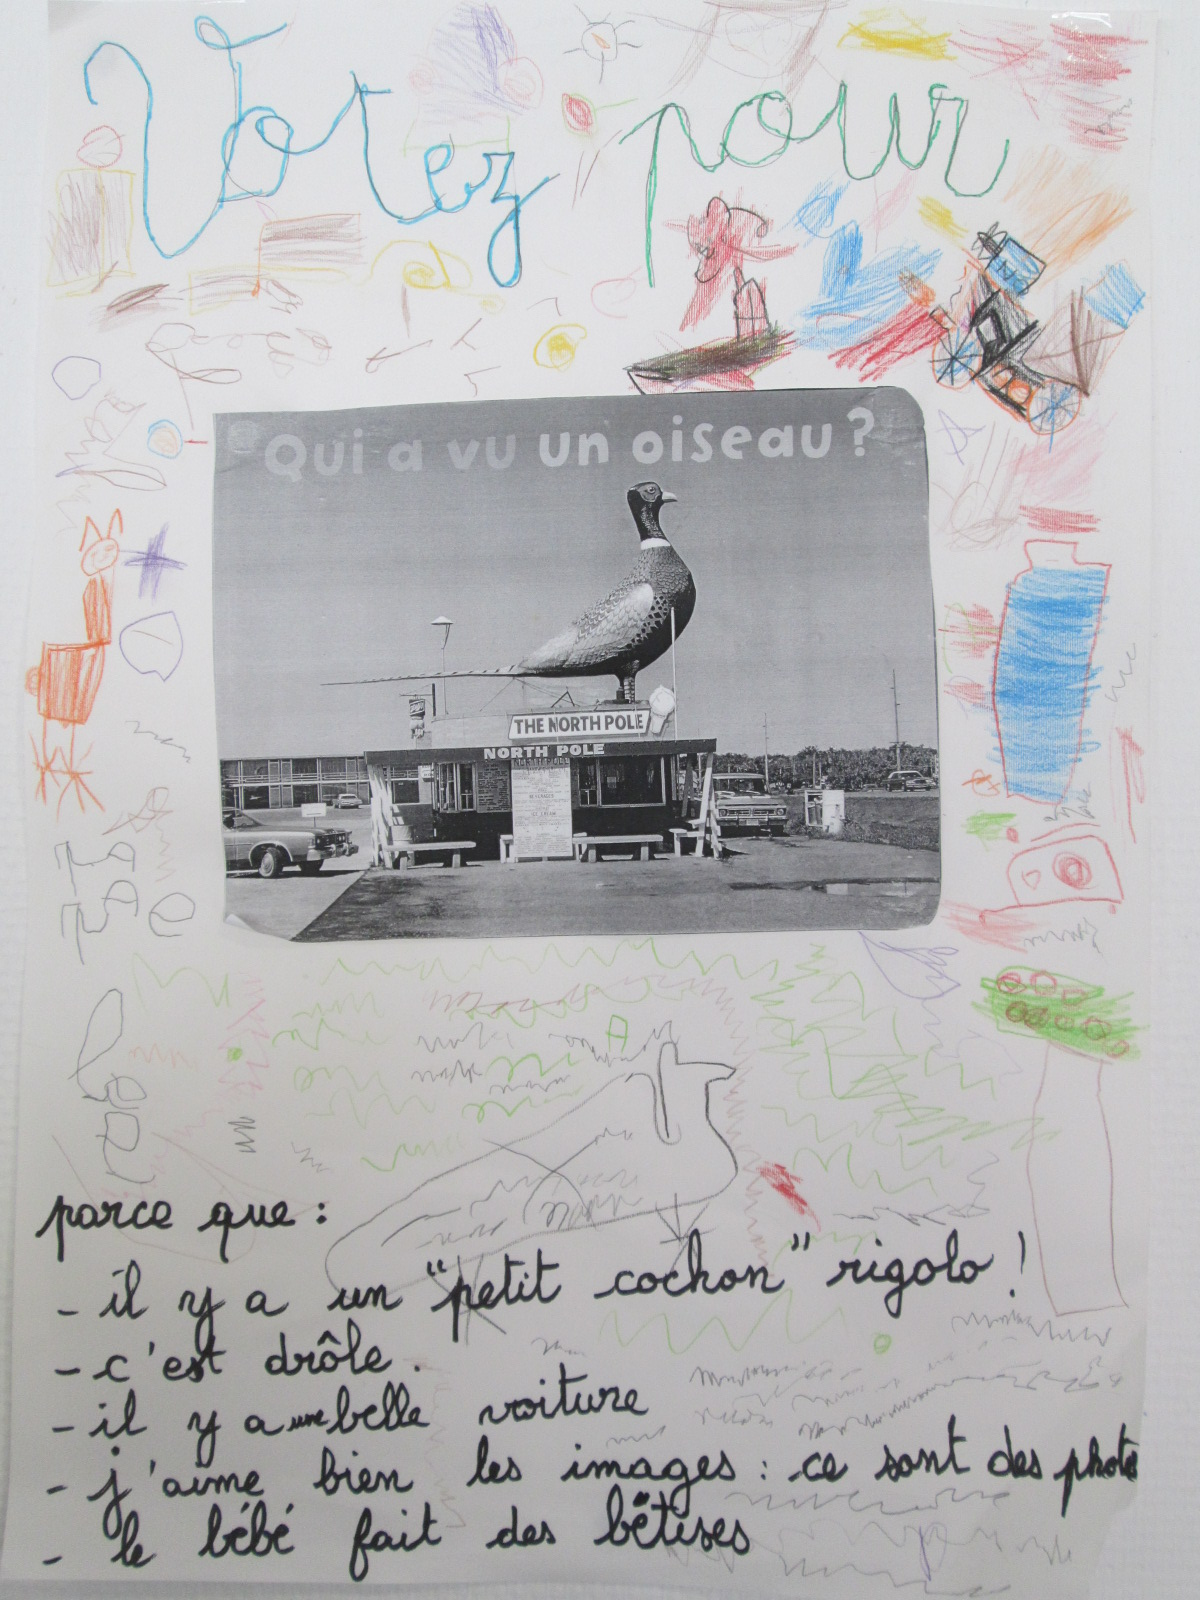 Votez pour
Qui a vu un oiseau?
THE NORTH POLE
NORTH POLE
parce que :
- il y a un "petit cochon" rigolo !
- c'est drôle.
- il y a une belle voiture
- j'aime bien les images : ce sont des photos
- le bébé fait des bêtises